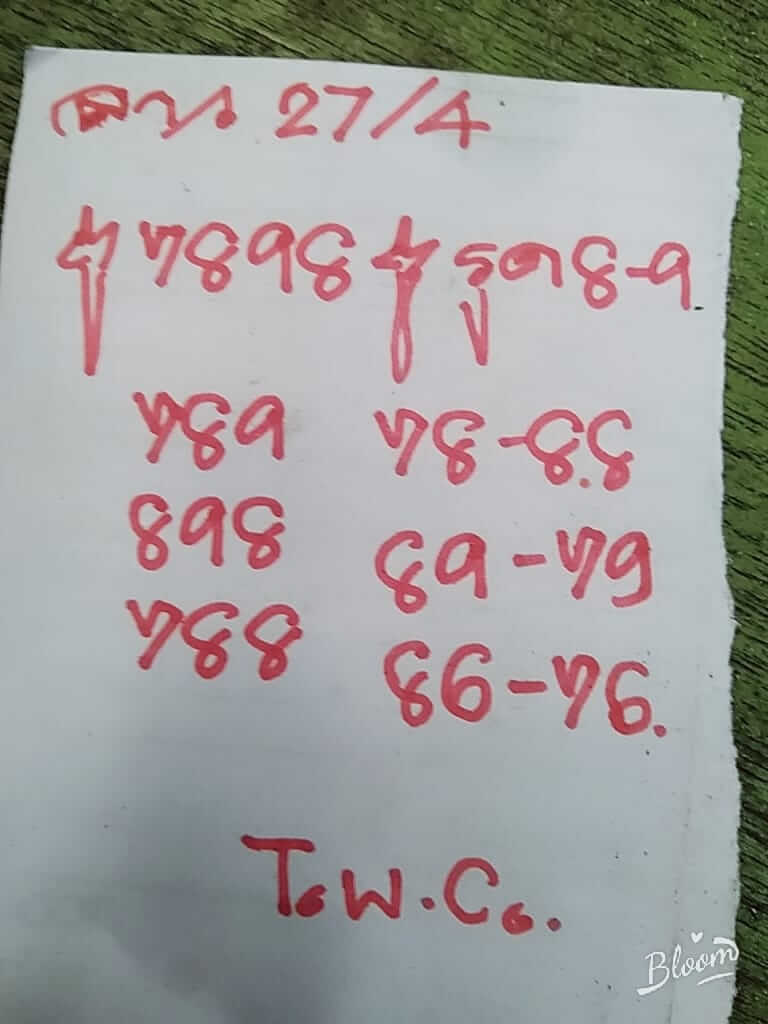 ลาว 27/4
7898 รูด 8-9
789 78-88
898 89-79
788 86-76.
T.W.C.
Bloom